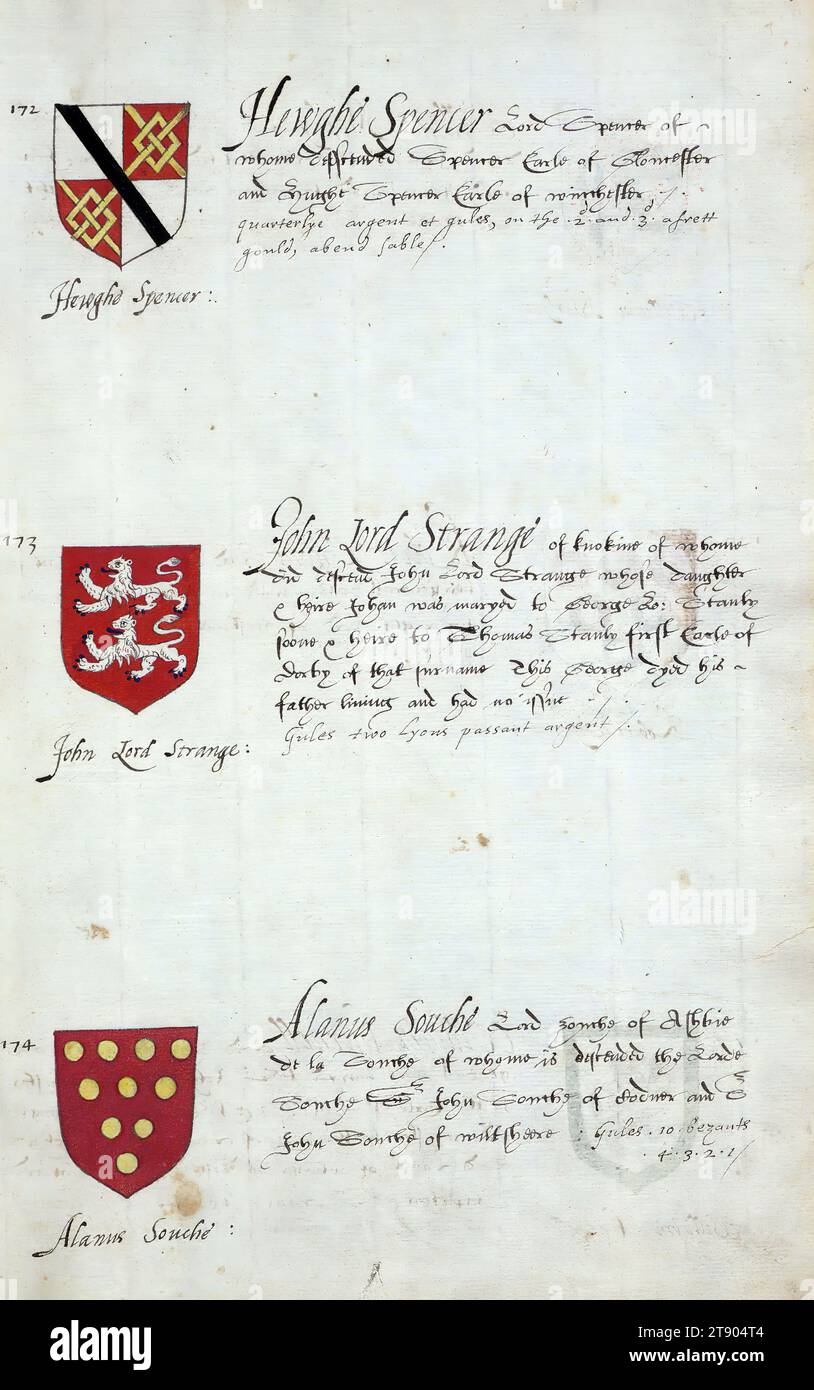 172
Hewghe Spencer Lord Spencer of
whome desscended Spencer Earle of Gloncester
and Hughe Spencer Earle of winchester /.
quarterlye argent et gules, on the .2d. and .3d. a frett
gould, a bend sable /.
Hewghe Spencer :.
173
John Lord Strange of knokine of whome
did descend John Lord Strange whose daughter
& heire Johan was maryed to George Lo: Stanly
soone & heire to Thomas Stanly first Earle of
Derby of that surname This George dyed his
father living and had no issue
Gules two Lyons passant argent /.
John Lord Strange :
174
Alanus Souche Lord zouche of Ashbie
de la Souche of whome is descended the Lorde
Souche Sr John Souche of Codner and Sr
John Souche of wiltsheere : Gules .10. bezants
.4.3.2.1/
Alanus Souche :
alamy
alamy
alamy
alamy
Image ID: 2T904T4
www.alamy.com